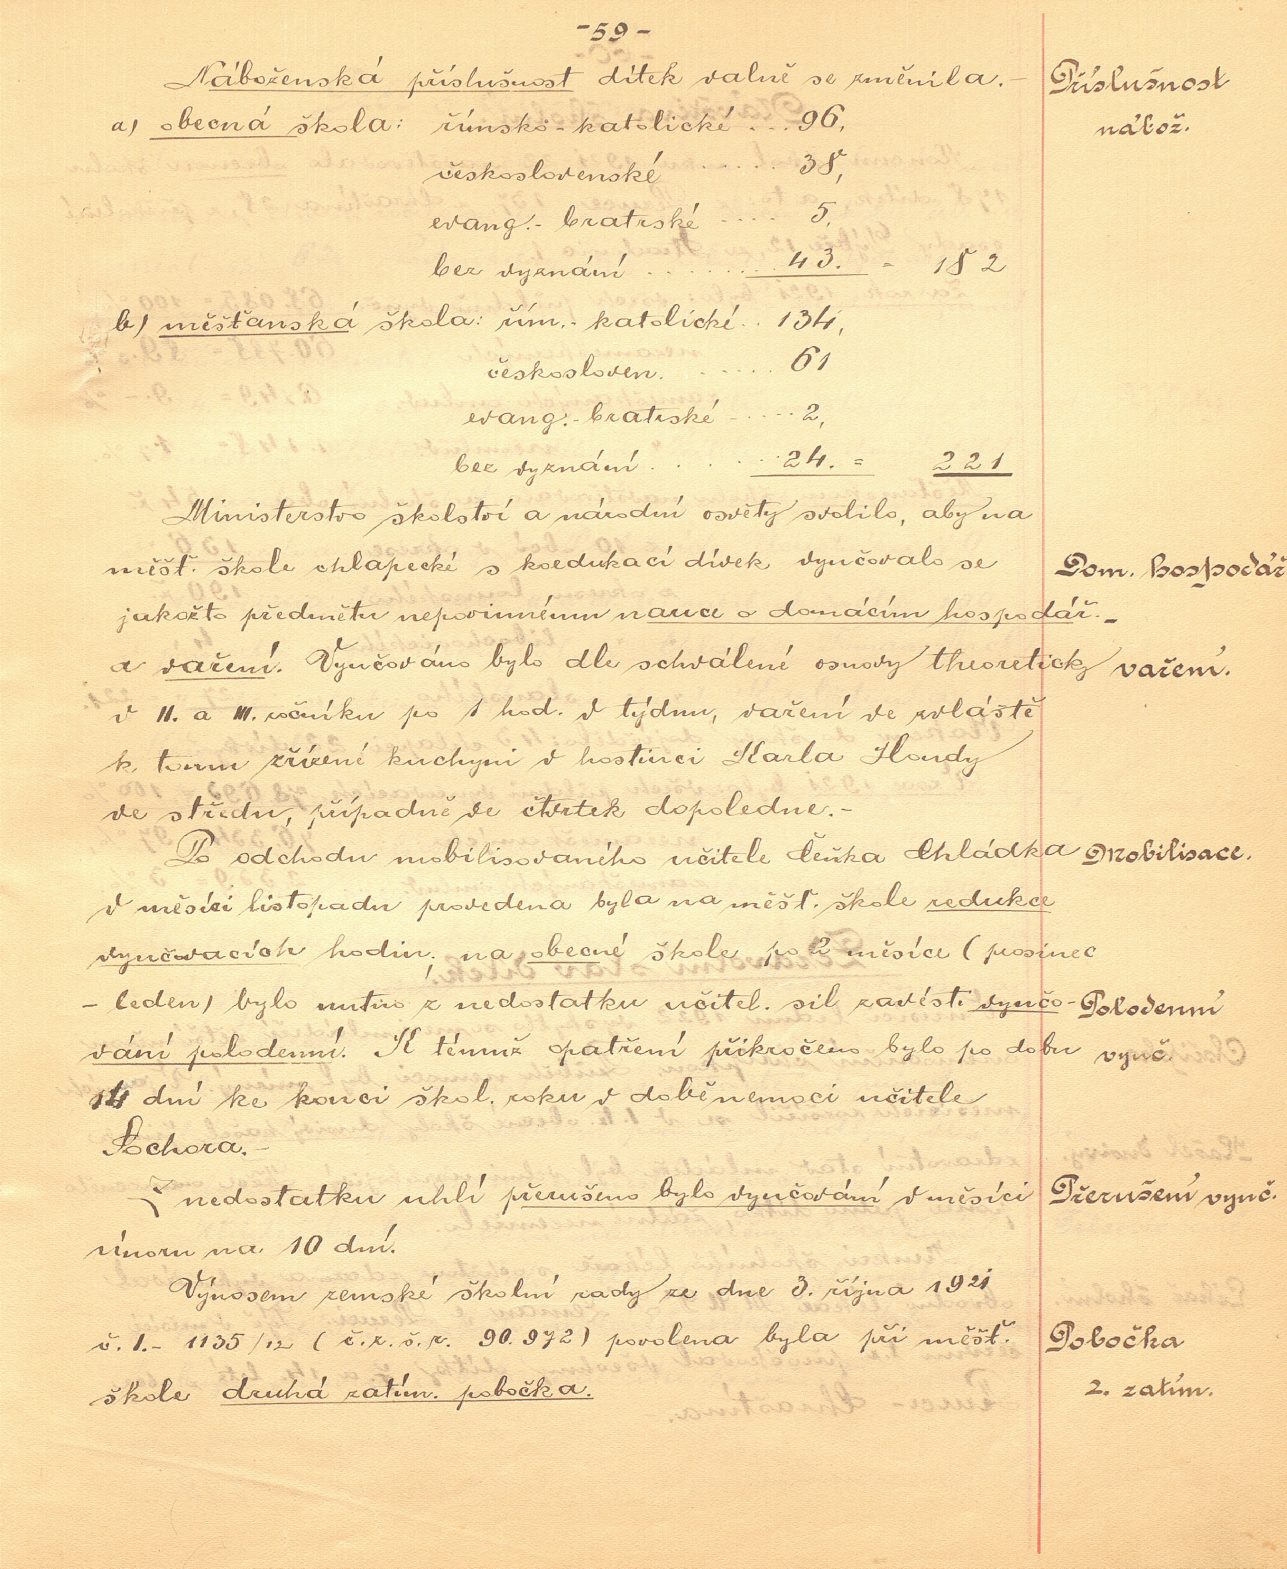 -59-
Náboženská příslušnost dítek valně se změnila.- Příslušnost
a) obecná škola: římsko-katolické ... 96, nábož.
československé ..... 38,
evang.- bratrské .... 5,
bez vyznání ...... 43. = 182
b) měšťanská škola: řím.- katolické .. 134,
českosloven. ..... 61
evang.- bratrské ..... 2,
bez vyznání ..... 24. = 221
Ministerstvo školství a národní osvěty svolilo, aby na
měšť. škole chlapecké s koedukací dívek vyučovalo se Dom. hospodář
jakožto předmětu nepovinnému nauce o domácím hospodář.-
a vaření. Vyučováno bylo dle schválené osnovy theoreticky vaření.
v II. a III. ročníku po 1 hod. v týdnu, vaření ve zvláště
k tomu zřízené kuchyni v hostinci Karla Hondy
ve středu, případně ve čtvrtek dopoledne.-
Po odchodu mobilisovaného učitele Čeňka Chládka Mobilisace.
v měsíci listopadu provedena byla na měšť. škole redukce
vyučovacích hodin; na obecné škole po 2 měsíce (prosinec
- leden) bylo nutno z nedostatku učitel. sil zavésti vyučo- Polodenní
vání polodenní. K témuž opatření přikročeno bylo po dobu vyuč.
14 dní ke konci škol. roku v době nemoci učitele
Sochora.-
Z nedostatku uhlí přerušeno bylo vyučování v měsíci Přerušení vyuč.
únoru na 10 dní.
Výnosem zemské školní rady ze dne 3. října 1921
č. I.- 1135/12 (č.z.š.r. 90.972) povolena byla při měšť. Pobočka
škole druhá zatím. pobočka. 2. zatím.